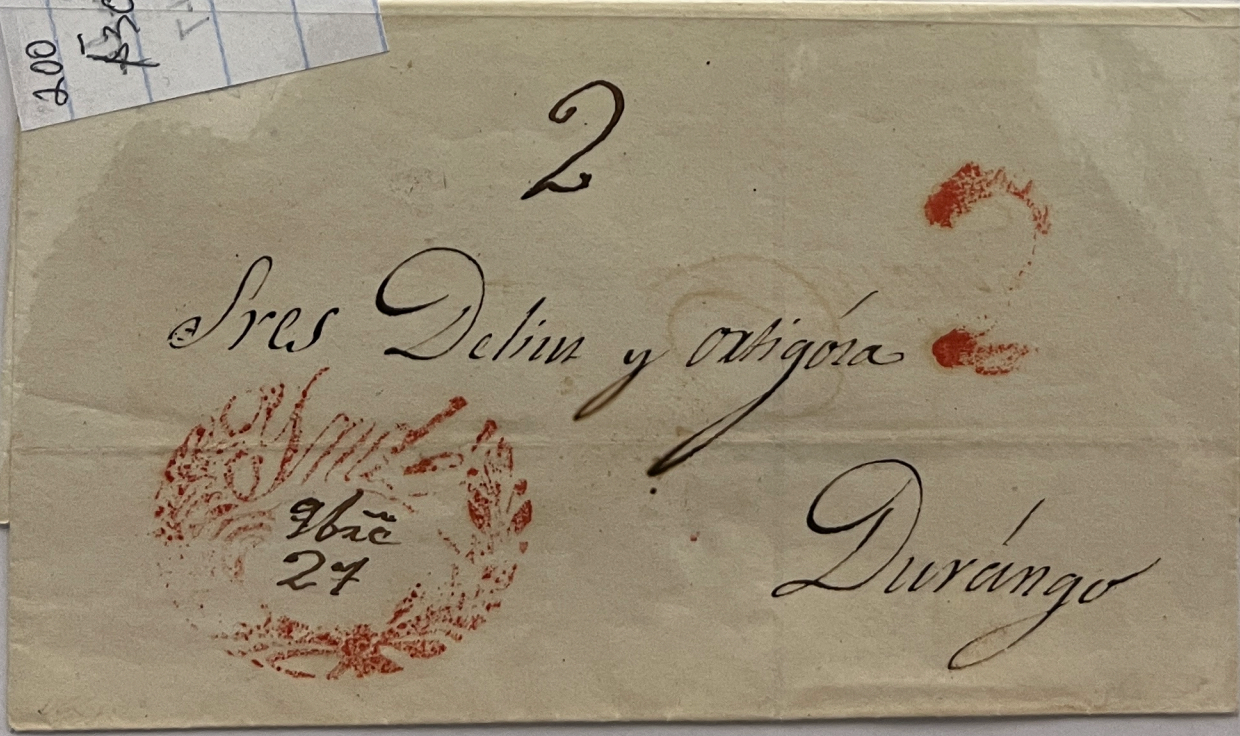 200
$30
2
2
Sres Delius y ortigóza
9bre
27
Durángo